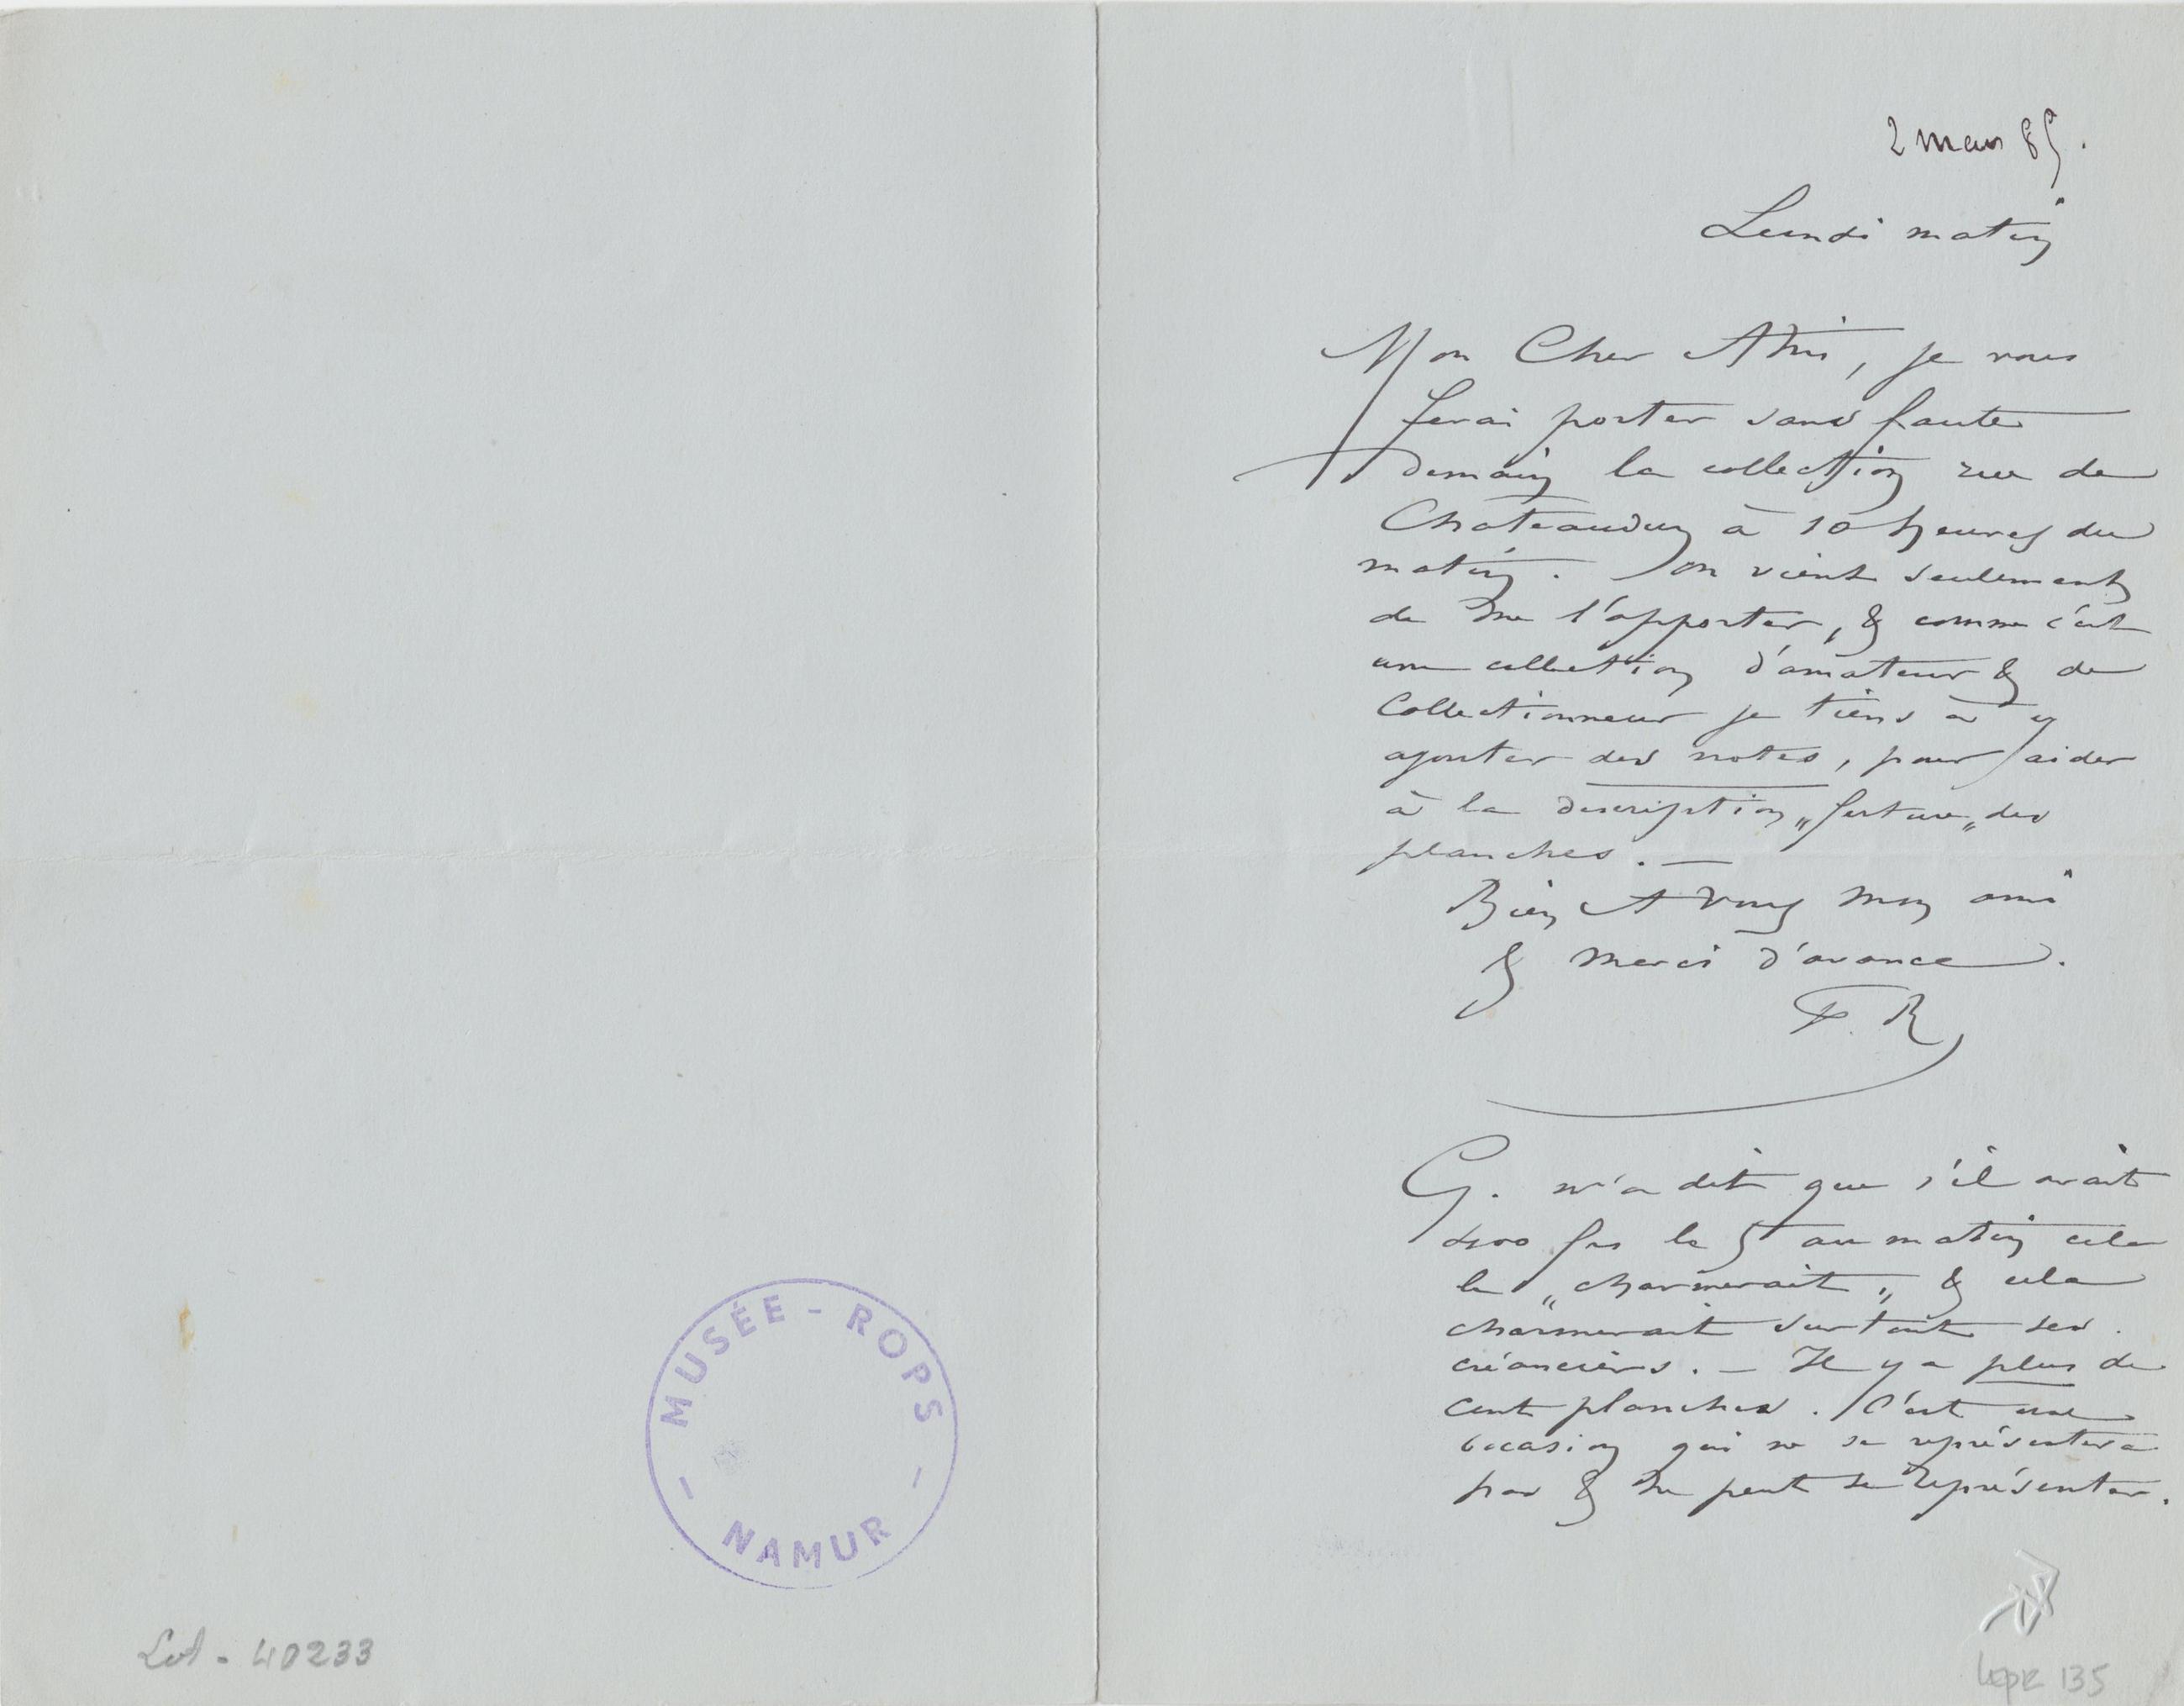 MUSÉE - ROPS
- NAMUR -
Let - 40233
2 mars 85.
Lundi matin
Mon Cher Ami, je vous
ferai porter sans faute
demain la collection rue de
Chateaudun à 10 heures du
matin. On vient seulement
de me l'apporter, & comme c'est
une collection d'amateur & de
Collectionneur je tiens à y
ajouter des notes, pour aider
à la description „future„ des
planches. —
Bien A Vous mon ami
& merci d'avance.
F. R
G. m'a dit que s'il avait
400 frs le 5 au matin cela
le „charmerait„ & cela
charmerait surtout ses
créanciers. – Il y a plus de
cent planches. C'est une
occasion qui ne se représentera
pas & ne peut se représenter.
LEpR 135